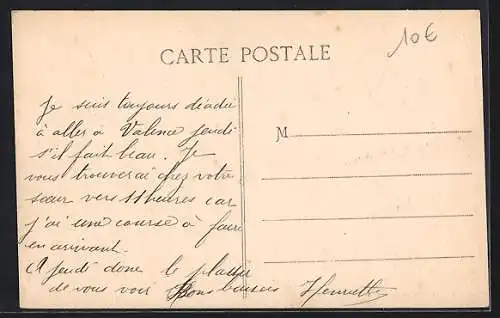 CARTE POSTALE
10€
Je suis toujours déadié
à aller à Valence jeudi
s'il fait beau. Je
vous trouverai chez votre
sœur vers 11 heures car
j'ai une course à faire
en arrivant.
A jeudi donc le plaisir
de vous voir Bons baisers Henriette
M